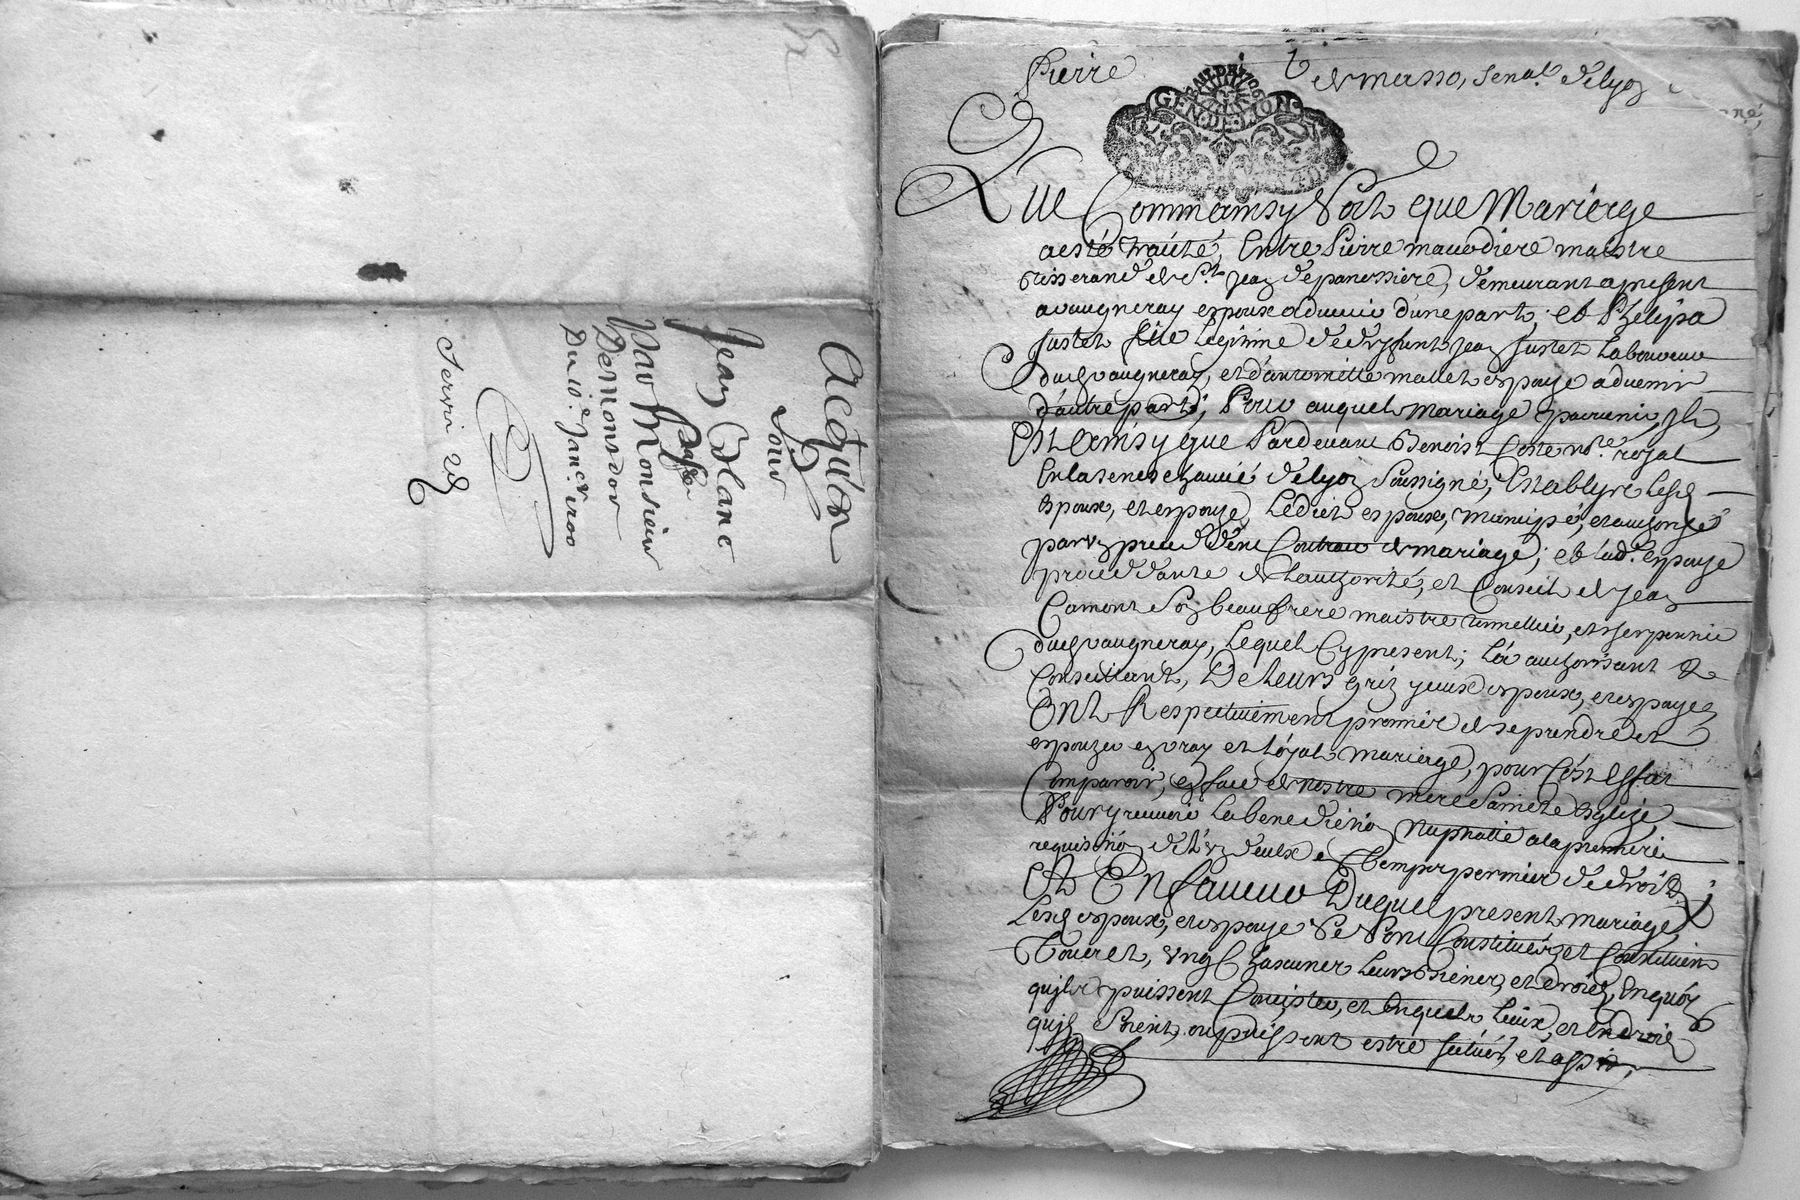 Acquit
Pour
Jean Blanc
Passé
Par Monsieur
De Mondor
Du 10e Jan.er 1700
Servir
Pierre
de masso, Senal delyon
BAIL DE 1706
GEN. DE LION
Comme ainsy Soit que Mariage
aesté traité, Entre Pierre mauvodiere maistre
tisserand de St Jean depanessiere, demeurant apresent
avaugneray espoux aduenir d'une part; et Phelipa
fustet fille Legitime de deffunt Jean fustet Laboureur
dud vaugneray, et d'antoinette mallet espouze aduenir
d'autre part; Pour auquel mariage paruenir, Il
Est Ainsy que Pardeuant Benoist Coste nore royal
En la seneschaucée delyon Soussigné, Establys Lesd
Espoux, et espouze, Ledict espoux, mancipé, et authorizé
par precedent Contract de mariage; et lad. espouze
procedante de Lauthorité, et Conseil de Jean
Camont Son beaufrere maistre tonnellier, et serpennie
dud vaugneray, Lequel Cypresent; La authorisant &
Conseillant, De Leurs grez yceux espoux, et espouze
Ont Respectiuement promis de se prendre et
espouzer en vray et Loyal mariage, pour Cest Effect
Comparoir, en face de nostre mere Saincte Esglize,
Pour y receuoir La benediction Nuptialle a la premiere
requisition de l'un deulx en temps permis de droit
Et En faueur Duquel present mariage,
Lesd espoux, et espouze Se Sont Constitués et Constituent
Touet, Ung Chascuner Leurs biens, et droicts, En quoy
quils puissent Consister, et En quels Lieux, et Endroits
quils Soient, ou puissent estre situés, et assis,